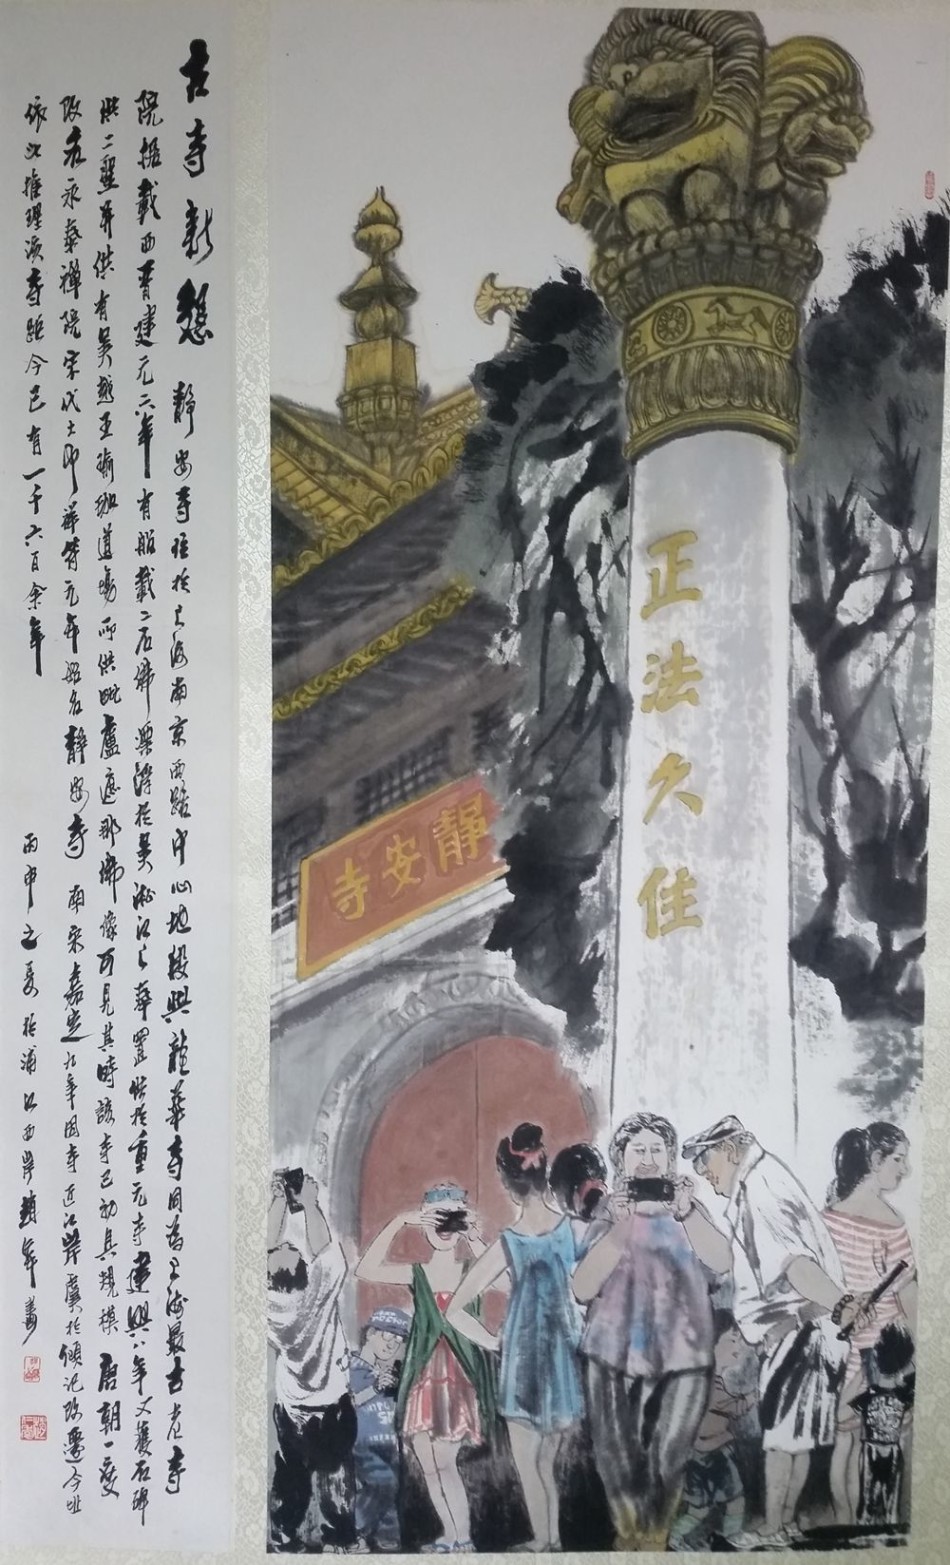 正法久佳
靜安寺
古寺新態
靜安寺位於上海南京西路中心地段與龍華寺同為上海最古老寺
院據載西晉建元六年有船載二石佛漂浮於吳淞江上奉置供於重元寺建興八年又獲石
供二聖并供有吳越王瑜珈道場所供毗盧遮那佛像可見其時該寺已初具規模唐朝一度
改名永泰禪院宋代大中祥符元年始名靜安寺南宋嘉定九年因寺近江岸虞於傾圮改遷今址
依此推理該寺距今已有一千六百余年
丙申之夏於浦江西岸趙年